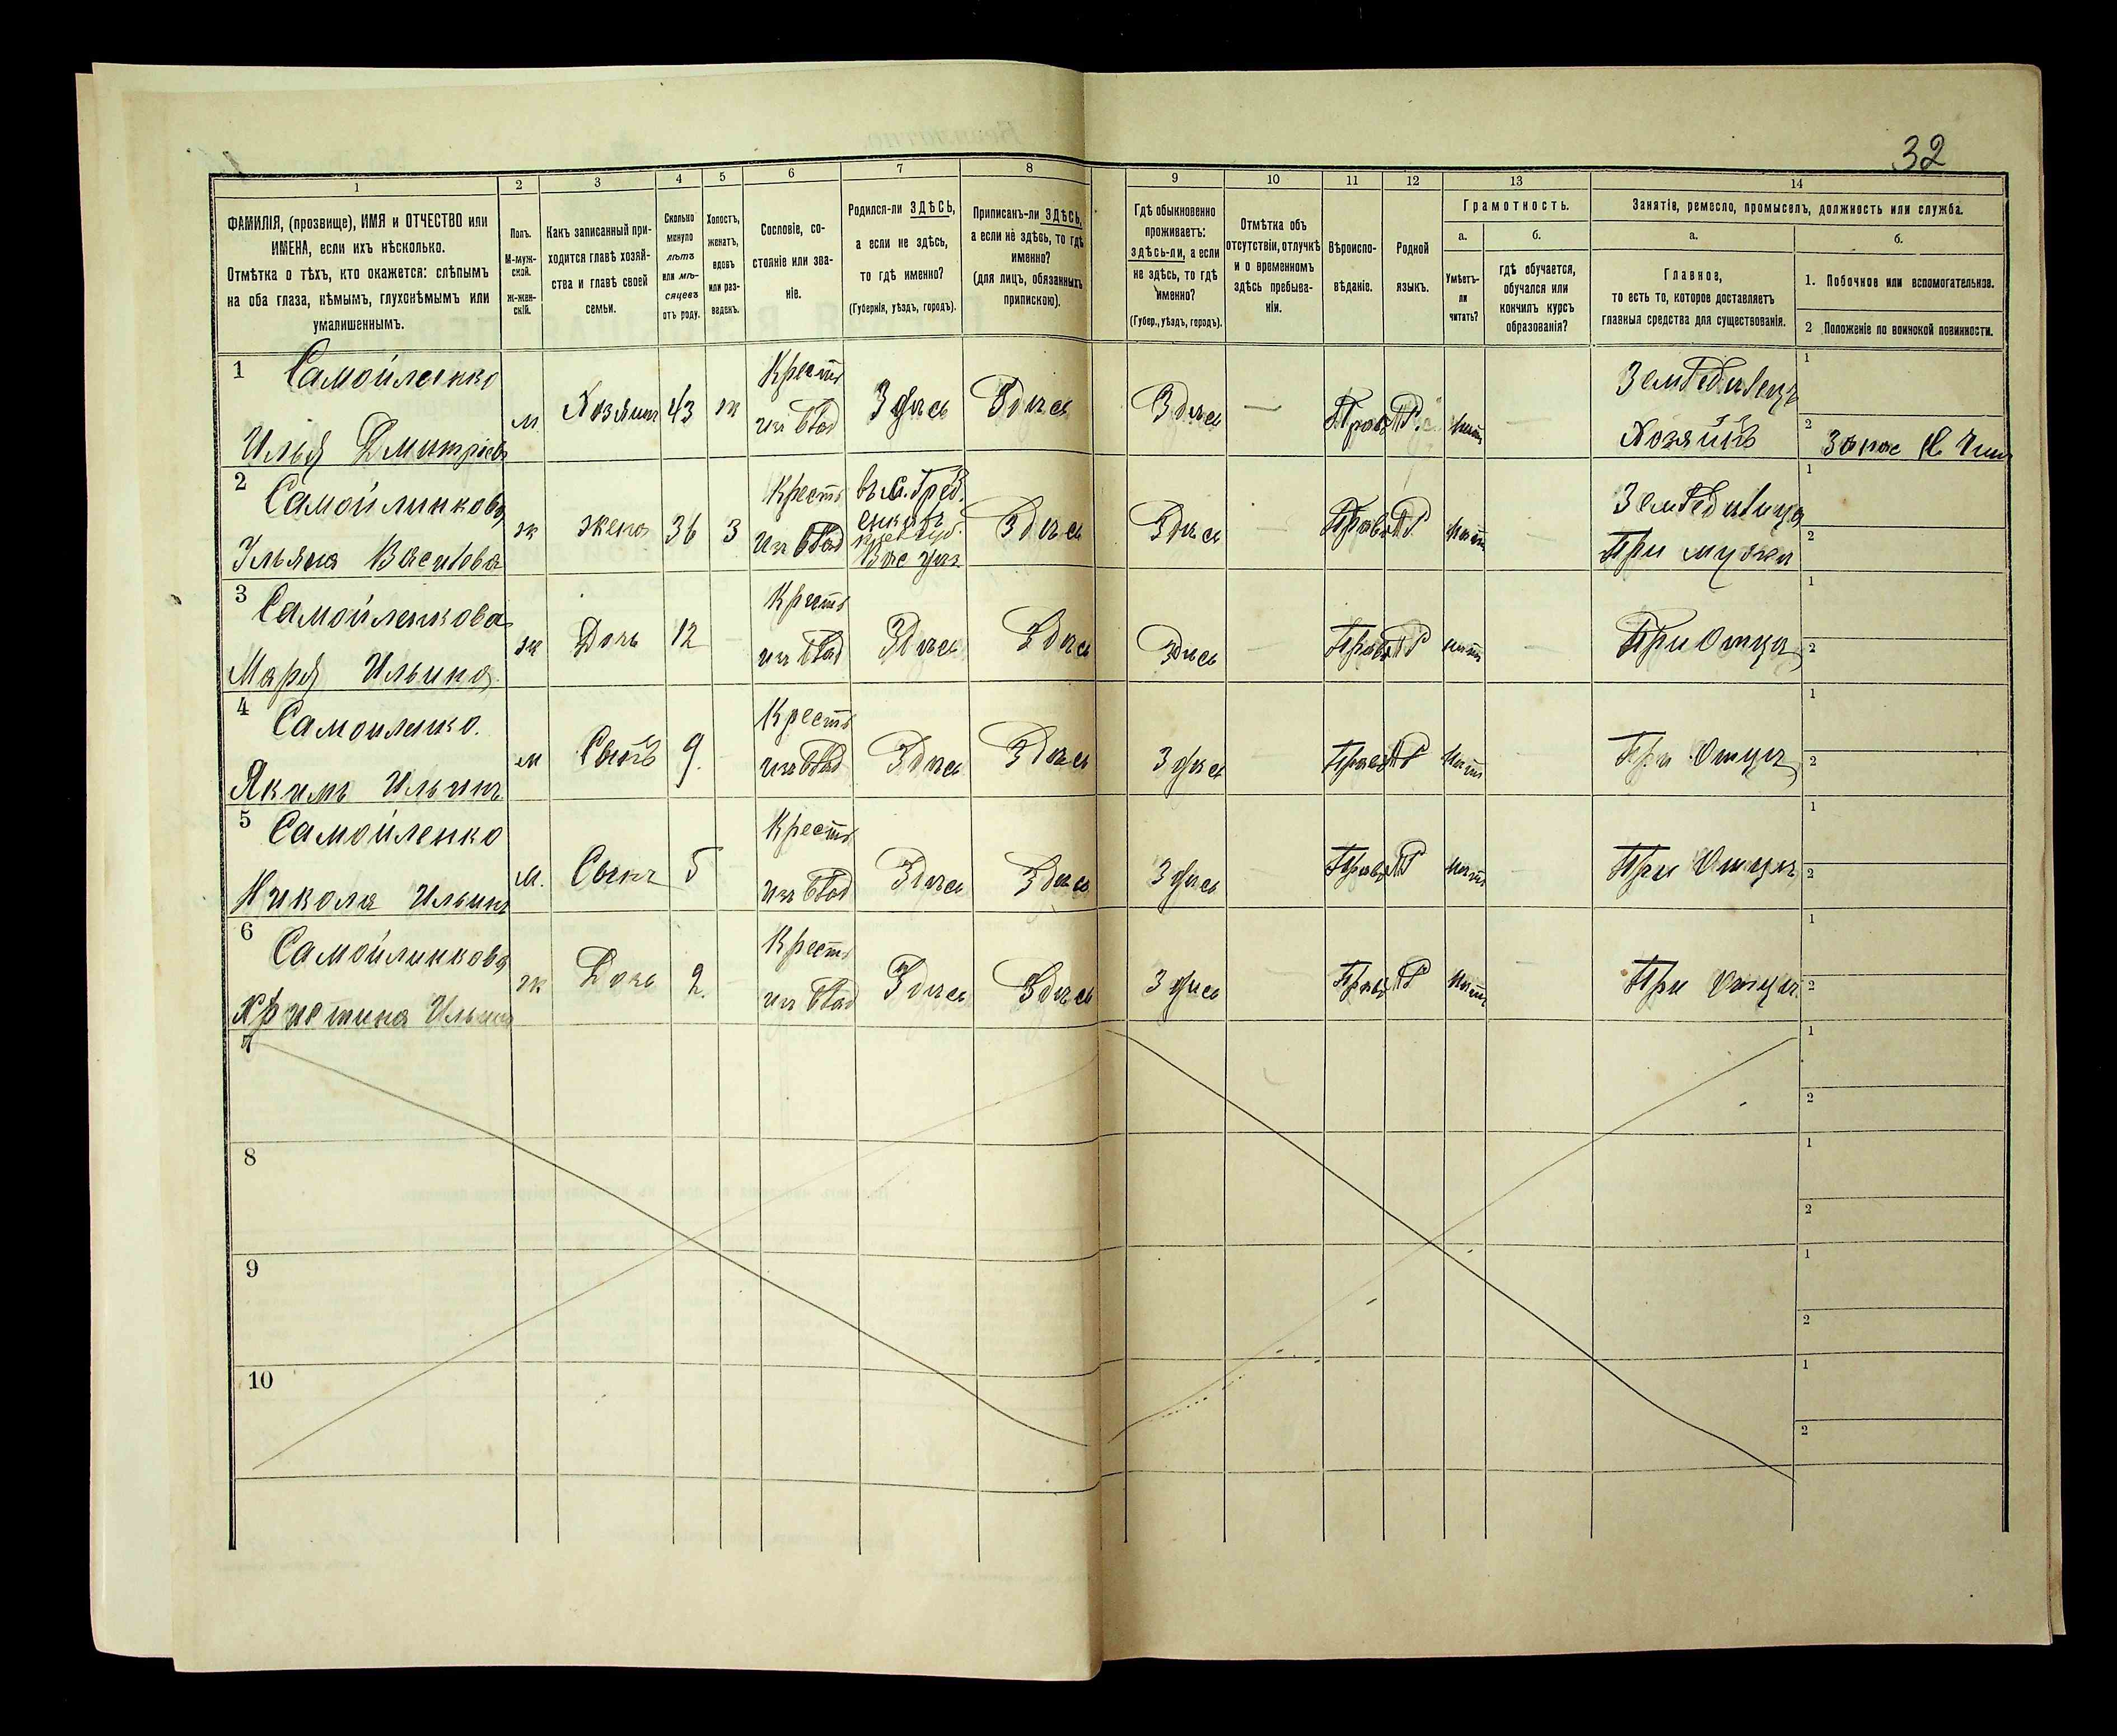 32
1 2 3 4 5 6 7 8 9 10 11 12 13 14
ФАМИЛІЯ, (прозвище), ИМЯ и ОТЧЕСТВО или
ИМЕНА, если ихъ нѣсколько.
Отмѣтка о тѣхъ, кто окажется: слѣпымъ
на оба глаза, нѣмымъ, глухонѣмымъ или
умалишеннымъ.
Полъ.
М-муж-
ской.
ж-жен-
скій.
Какъ записанный при-
ходится главѣ хозяй-
ства и главѣ своей
семьи.
Сколько
минуло
лѣтъ
или мѣ-
сяцевъ
отъ роду.
Холостъ,
женатъ,
вдовъ
или раз-
веденъ.
Сословіе, со-
стояніе или зва-
ніе.
Родился-ли ЗДѢСЬ,
а если не здѣсь,
то гдѣ именно?
(Губернія, уѣздъ, городъ).
Приписанъ-ли ЗДѢСЬ,
а если не здѣсь, то гдѣ
именно?
(для лицъ, обязанныхъ
припискою).
Гдѣ обыкновенно
проживаетъ:
здѣсь-ли, а если
не здѣсь, то гдѣ
именно?
(Губер., уѣздъ, городъ).
Отмѣтка объ
отсутствіи, отлучкѣ
и о временномъ
здѣсь пребыва-
ніи.
Вѣроиспо-
вѣданіе.
Родной
языкъ.
Грамотность.
а.
Умѣетъ-
ли
читать?
б.
гдѣ обучается,
обучался или
кончилъ курсъ
образованія?
Занятіе, ремесло, промыселъ, должность или служба.
а.
Главное,
то есть то, которое доставляетъ
главныя средства для существованія.
б.
1. Побочное или вспомогательное.
2 Положеніе по воинской повинности.
1 Самойленко
Илья Дмитріевъ
м Хозяинъ 43 ж
Крестъ
изъ Влад
Здѣсь Здѣсь Здѣсь — Прав Р. нѣтъ —
Хозяинъ
1
2
2 Самойлинкова
Ульяна Васильева
ж жена 36 З
Крестъ
изъ Влад
Вас уѣз
Здѣсь Здѣсь — Прав Р. нѣтъ —
При мужѣ
1
2
3 Самойленкова
Марья Ильина
ж Дочь 12 —
Крестъ
изъ Влад
Здѣсь Здѣсь Здѣсь — Прав Р нѣтъ —
При Отцѣ
1
2
4 Самойленко.
Якимъ Ильинъ
м Сынъ 9. —
Крестъ
изъ Влад
Здѣсь Здѣсь Здѣсь — Прав Р нѣтъ —
При Отцѣ
1
2
5 Самойленко
Никола Ильинъ
м. Сынъ 5
Крестъ
изъ Влад
Здѣсь Здѣсь Здѣсь — Прав Р нѣтъ —
При Отцѣ
1
2
6 Самойлинкова
Христина Ильина
ж Дочь 2. —
Крестъ
изъ Влад
Здѣсь Здѣсь Здѣсь — Прав Р нѣтъ —
При Отцѣ
1
2
1
2
8
1
2
9
1
2
10
1
2